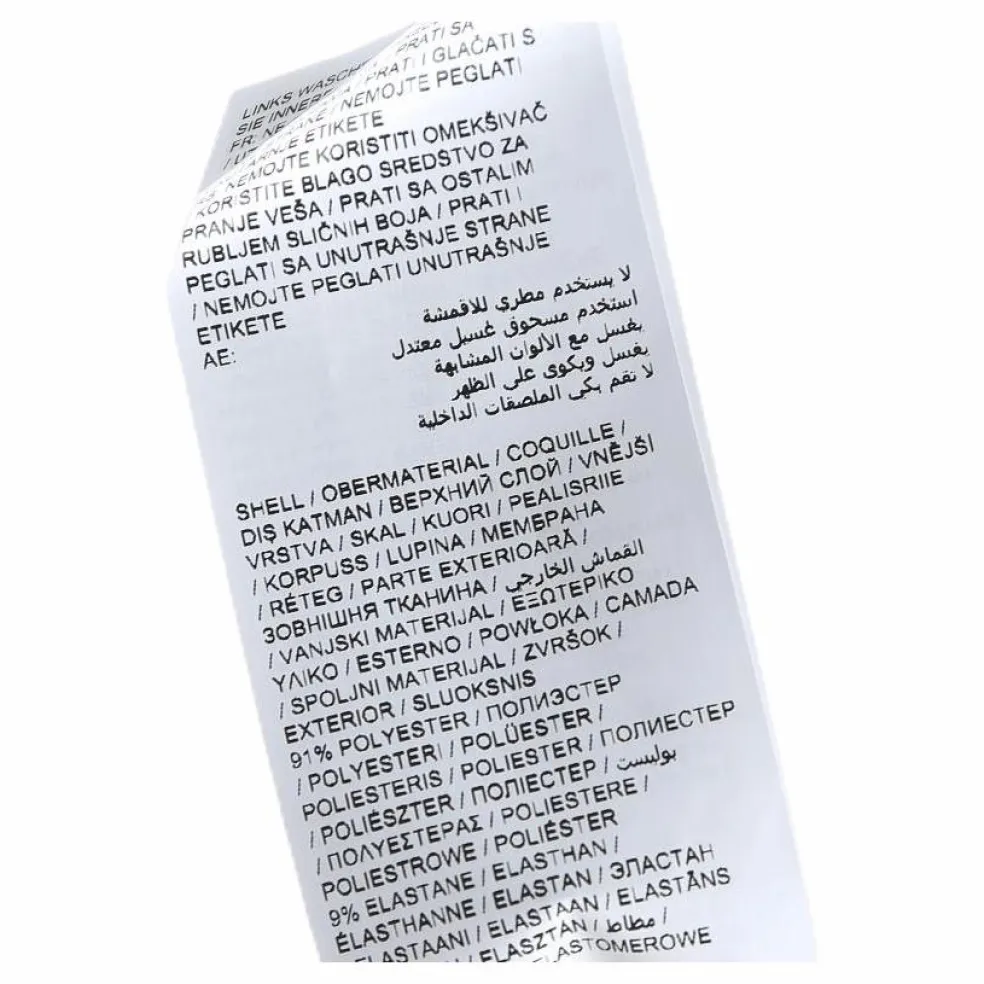 PRATI SA
LINKS WASCH PRATI I GLAČATI S
SIE INNER / NEMOJTE PEGLATI
FR: NE
ETIKETE
NEMOJTE KORISTITI OMEKŠIVAČ
/ KORISTITE BLAGO SREDSTVO ZA
PRANJE VEŠA / PRATI SA OSTALIM
RUBLJEM SLIČNIH BOJA / PRATI I
PEGLATI SA UNUTRAŠNJE STRANE
/ NEMOJTE PEGLATI UNUTRAŠNJE
ETIKETE
AE:
لا يستخدم مطري للاقمشة
استخدم مسحوق غسيل معتدل
يغسل مع الألوان المشابهة
يغسل ويكوى على الظهر
لا تقم بكي الملصقات الداخلية
SHELL / OBERMATERIAL / COQUILLE /
DIŞ KATMAN / ВЕРХНИЙ СЛОЙ / VNĚJŠÍ
VRSTVA / SKAL / KUORI / PEALISRIIE
/ KORPUSS / LUPINA / МЕМБРАНА
/ RÉTEG / PARTE EXTERIOARĂ /
ЗОВНІШНЯ ТКАНИНА / القماش الخارجي
/ VANJSKI MATERIJAL / ΕΞΩΤΕΡΙΚΟ
ΥΛΙΚΟ / ESTERNO / POWŁOKA / CAMADA
/ SPOLJNI MATERIJAL / ZVRŠOK /
EXTERIOR / SLUOKSNIS
91% POLYESTER / ПОЛИЭСТЕР
/ POLYESTERI / POLÜESTER /
POLIESTERIS / POLIESTER / ПОЛИЕСТЕР
/ POLIÉSZTER / ПОЛІЕСТЕР / بوليست
/ ΠΟΛΥΕΣΤΕΡΑΣ / POLIESTERE /
POLIESTROWE / POLIÉSTER
9% ELASTANE / ELASTHAN /
ÉLASTHANNE / ELASTAN / ЭЛАСТАН
ELASTAANI / ELASTAAN / ELASTĀNS
ELASZTÁN / مطاط /
ELASTOMEROWE